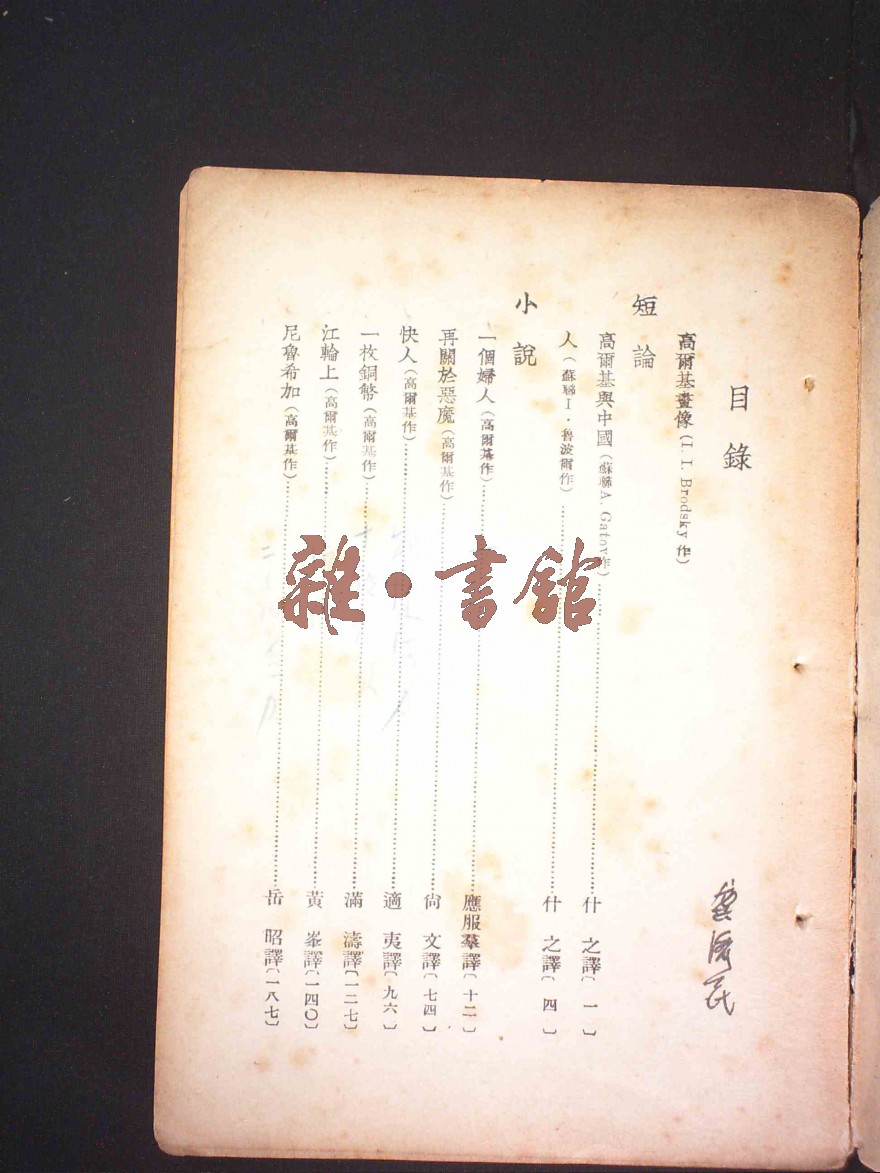 目錄
高爾基畫像(I. I. Brodsky 作)
短論
高爾基與中國(蘇聯A. Gator作)……什之譯〔一〕
人(蘇聯I·魯波爾作)……什之譯〔四〕
小說
一個婦人(高爾基作)……應服羣譯〔十二〕
再關於惡魔(高爾基作)……尙文譯〔七四〕
快人(高爾基作)……適夷譯〔九六〕
一枚銅幣(高爾基作)……滿濤譯〔一二七〕
江輪上(高爾基作)……黃峯譯〔一四〇〕
尼魯希加(高爾基作)……岳昭譯〔一八七〕
雜·書館